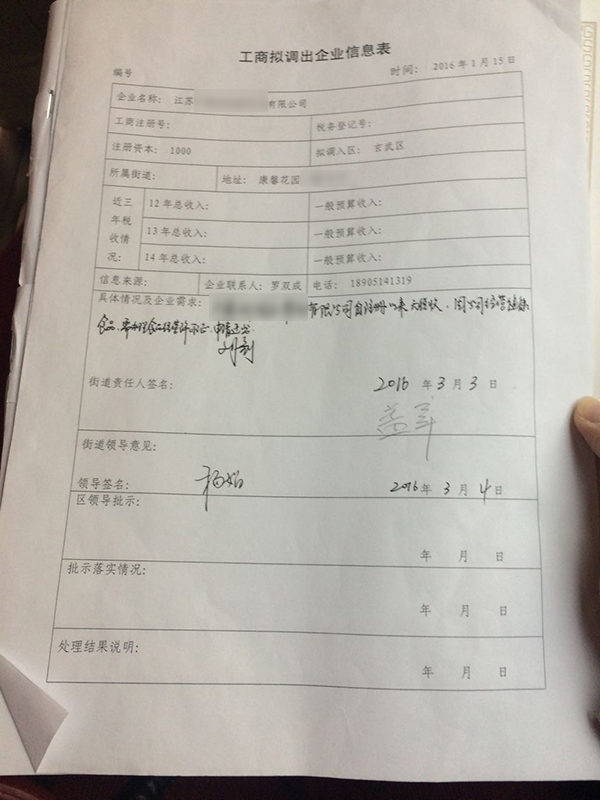 工商拟调出企业信息表
编号 时间： 2016年1月15日
企业名称： 江苏 有限公司
工商注册号： 税务登记号：
注册资本： 1000 拟调入区： 玄武区
所属街道： 地址： 康馨花园
近三年税收情况：
12年总收入： 一般预算收入：
13年总收入： 一般预算收入：
14年总收入： 一般预算收入：
信息来源： 企业联系人： 罗双成 电话： 18905141319
具体情况及企业需求： 有限公司自注册以来无税收，因公司经营
食品，需办理食品经营许可证，申请迁出。
街道责任人签名： 2016年3月3日
街道领导意见：
领导签名： 2016年3月4日
区领导批示：
年 月 日
批示落实情况：
年 月 日
处理结果说明：
年 月 日